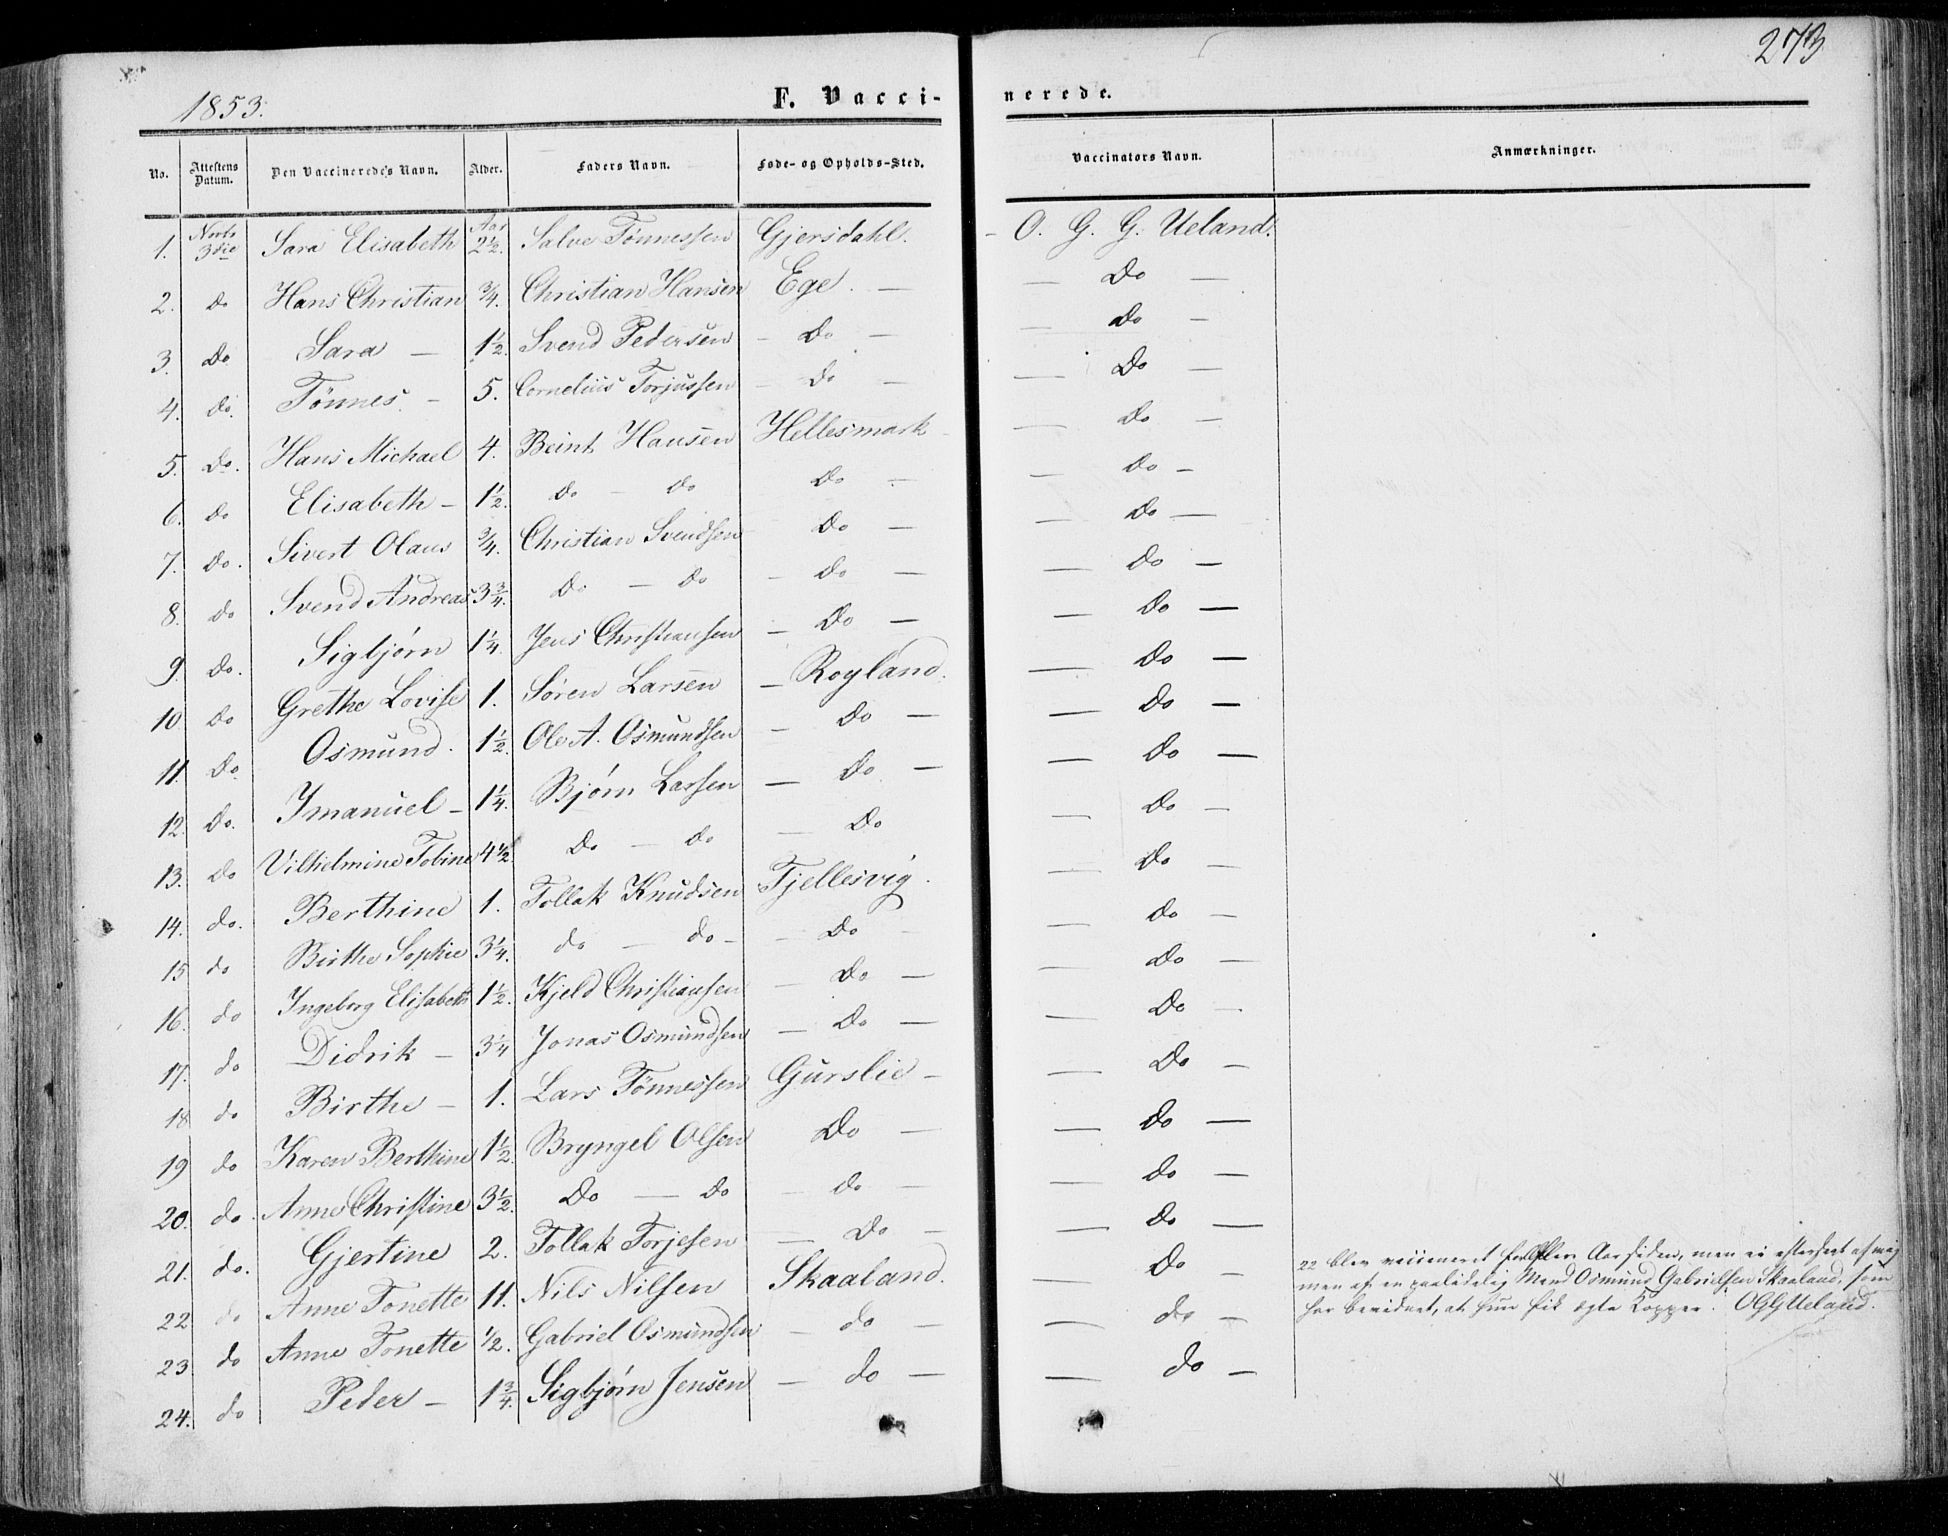 273
1853.
F. Vacci-nerede.
No. Attestens Datum. Den Vaccineredes Navn. Alder. Faders Navn. Føde- og Opholds-Sted. Vaccinators Navn. Anmærkninger.
1. Novbr 3die Sara Elisabeth Aar 2½. Salve Tönnessen Gjersdahl. – O. G. G. Ueland.
2. do Hans Christian ¾. Christian Hansen Ege. — — Do —
3. Do Sara — 1½. Svend Pedersen – Do — — do –
4. do. Tönnes. – 5. Cornelius Torjussen – do — — Do —
5. Do. Hans Michael 4. Beint Hansen Hellesmark — Do –
6. do Elisabeth – 1½. do – do Do — — do –
7. Do. Sivert Olaus ¾. Christian Svendsen Do — — do —
8. do Svend Andreas 3¾. do. — do – do — — do –
9 Do. Sigbjørn 1¼. Jens Christiansen – Do — — do —
10 do Grethe Lovise 1. Søren Larsen – Royland. — do —
11. Do. Osmund. 1½. Ole A. Osmundsen – do — — do —
12. Do. Imanuel – 1¼. Bjørn Larsen — do — — do —
13. do Vilhelmine Tobine 4½. Do — do — Do — Do –
14. do. Berthine 1. Tollak Knudsen Fjellesvig. — Do –
15 do Birthe Sophie 3¼. do — do – – Do – — do –
16. do Ingeborg Elisabeth 1½. Kjeld Christiansen — do — — do —
17. do Didrik – 3¼ Jonas Osmundsen — do — — Do –
18 do Birthe – 1. Lars Tönnessen Gurslie – — Do –
19 do Karen Berthine 1½. Bryngel Olsen Do — — do —
20. do. Anne Christine 3½. Do — do – do – — do —
21. do. Gjertine 2. Tollak Torjesen — Do – — do —
22 do Anne Tonette 11. Nils Nilsen Skaaland. — do –
23 do Anne Tonette ½. Gabriel Osmundsen – do – — do –
24. do Peder – 1¾. Sigbjørn Jensen – do — — do –
22 blev vaccineret for flere Aar siden, men ei efterseet af mig
men af en paalidelig Mand Osmund Gabrielsen Skaaland, som
har bevidnet, at hun fik ægte Kopper. OGGUeland.